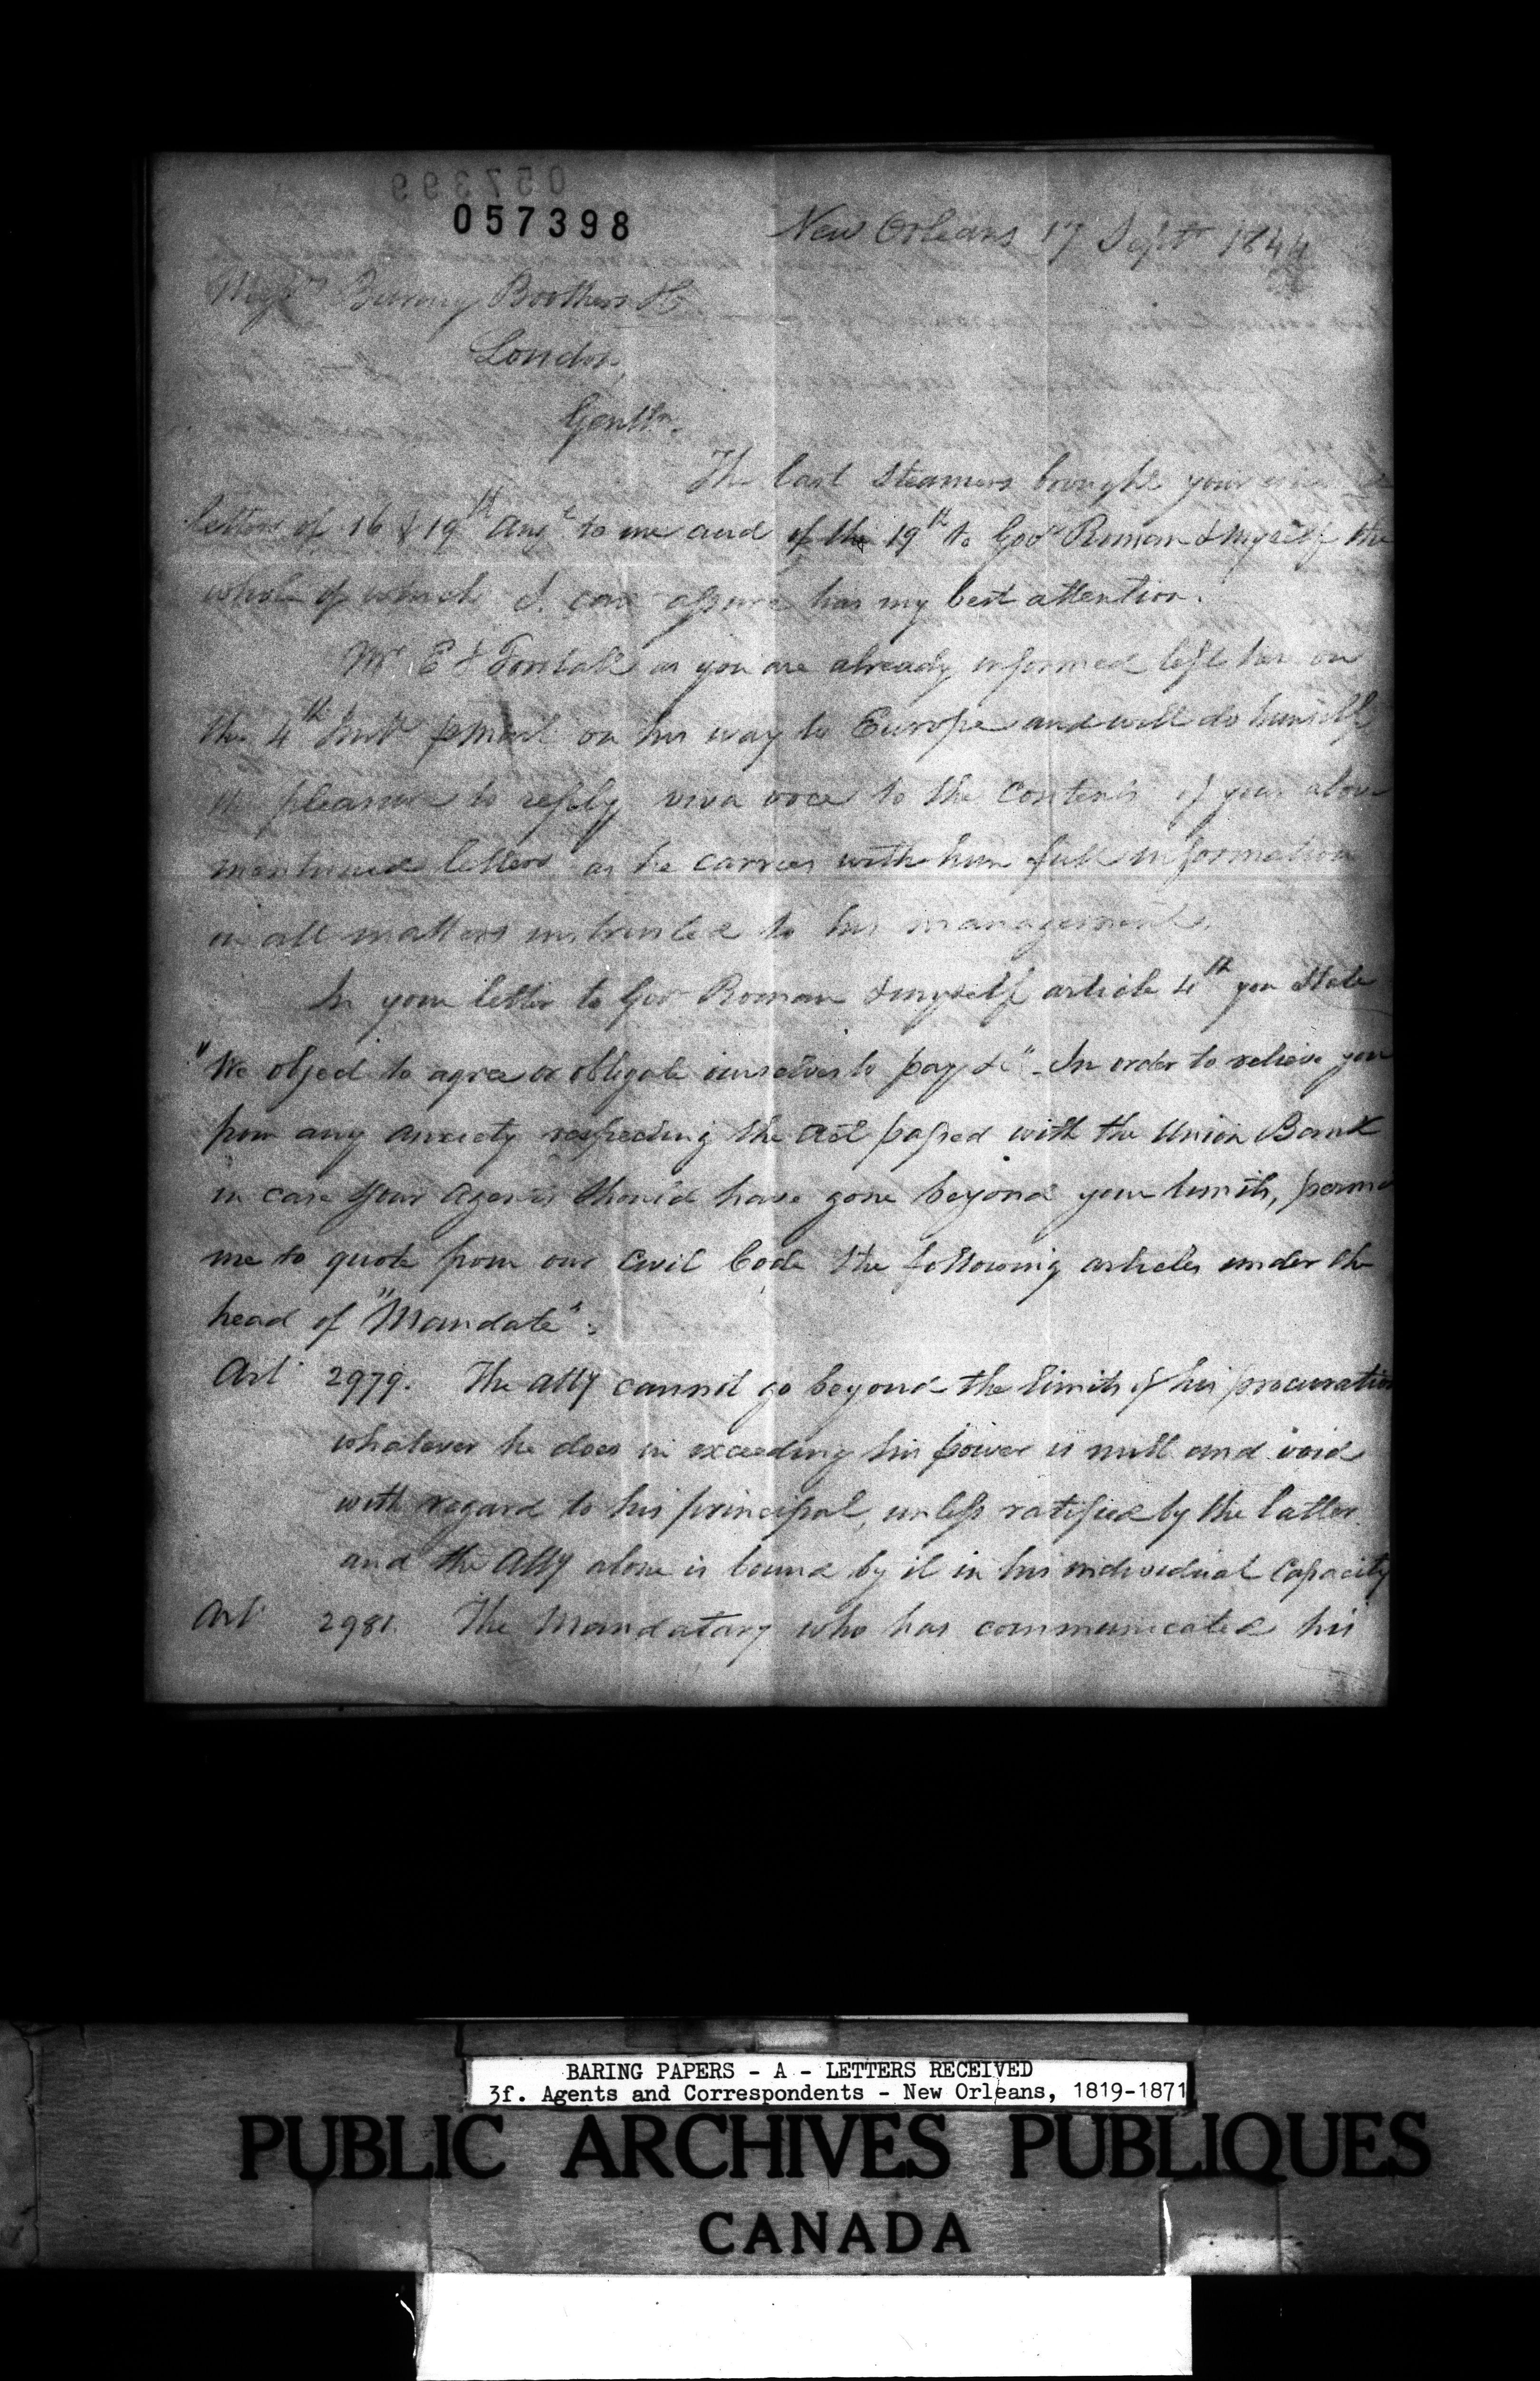 057399
057398
New Orleans 17 Septr 1844
Messrs Baring Brothers &Co
London,
Gentln.
The last Steamers brought your
letters of 16 & 19th Augt to me and of the 19th to Govr Roman & myself the
whole of which I can assure has my best attention.
Mr E J Forstall as you are already informed left here on
the 4th Inst pMail on his way to Europe and will do himself
the pleasure to reply viva voce to the contents of your above
mentioned letters as he carries with him full information
in all matters instrusted to his management.
In your letter to Gov Roman & myself article 4th you State
"We object to agree or obligate ourselves to pay &c" - In order to relieve you
from any anxiety respecting the act passed with the Union Bank
in case your Agents should have gone beyond your limits, permit
me to quote from our Civil Code the following articles under the
head of "Mandate":
Art 2979. The Atty cannot go beyond the limits of his procuration
whatever he does in exceeding his power is null and void
with regard to his principal, unless ratified by the latter
and the Atty alone is bound by it in his individual capacity
Art 2981. The Mandatary who has communicated his
BARING PAPERS - A - LETTERS RECEIVED
3f. Agents and Correspondents - New Orleans, 1819-1871
PUBLIC ARCHIVES PUBLIQUES
CANADA